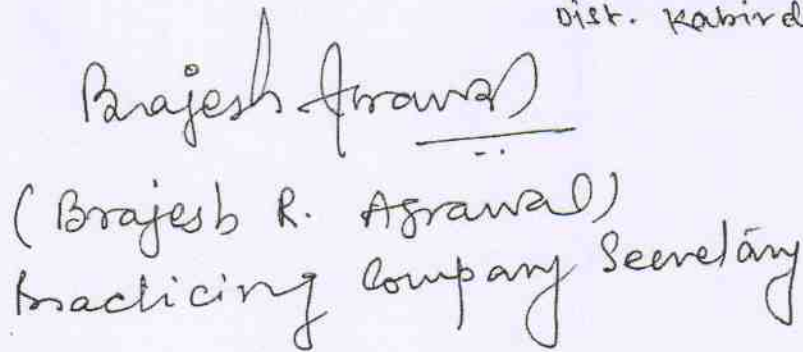 Dist. Kabird
Brajesh Agrawal
(Brajesh R. Agrawal)
Practicing Company Secretary